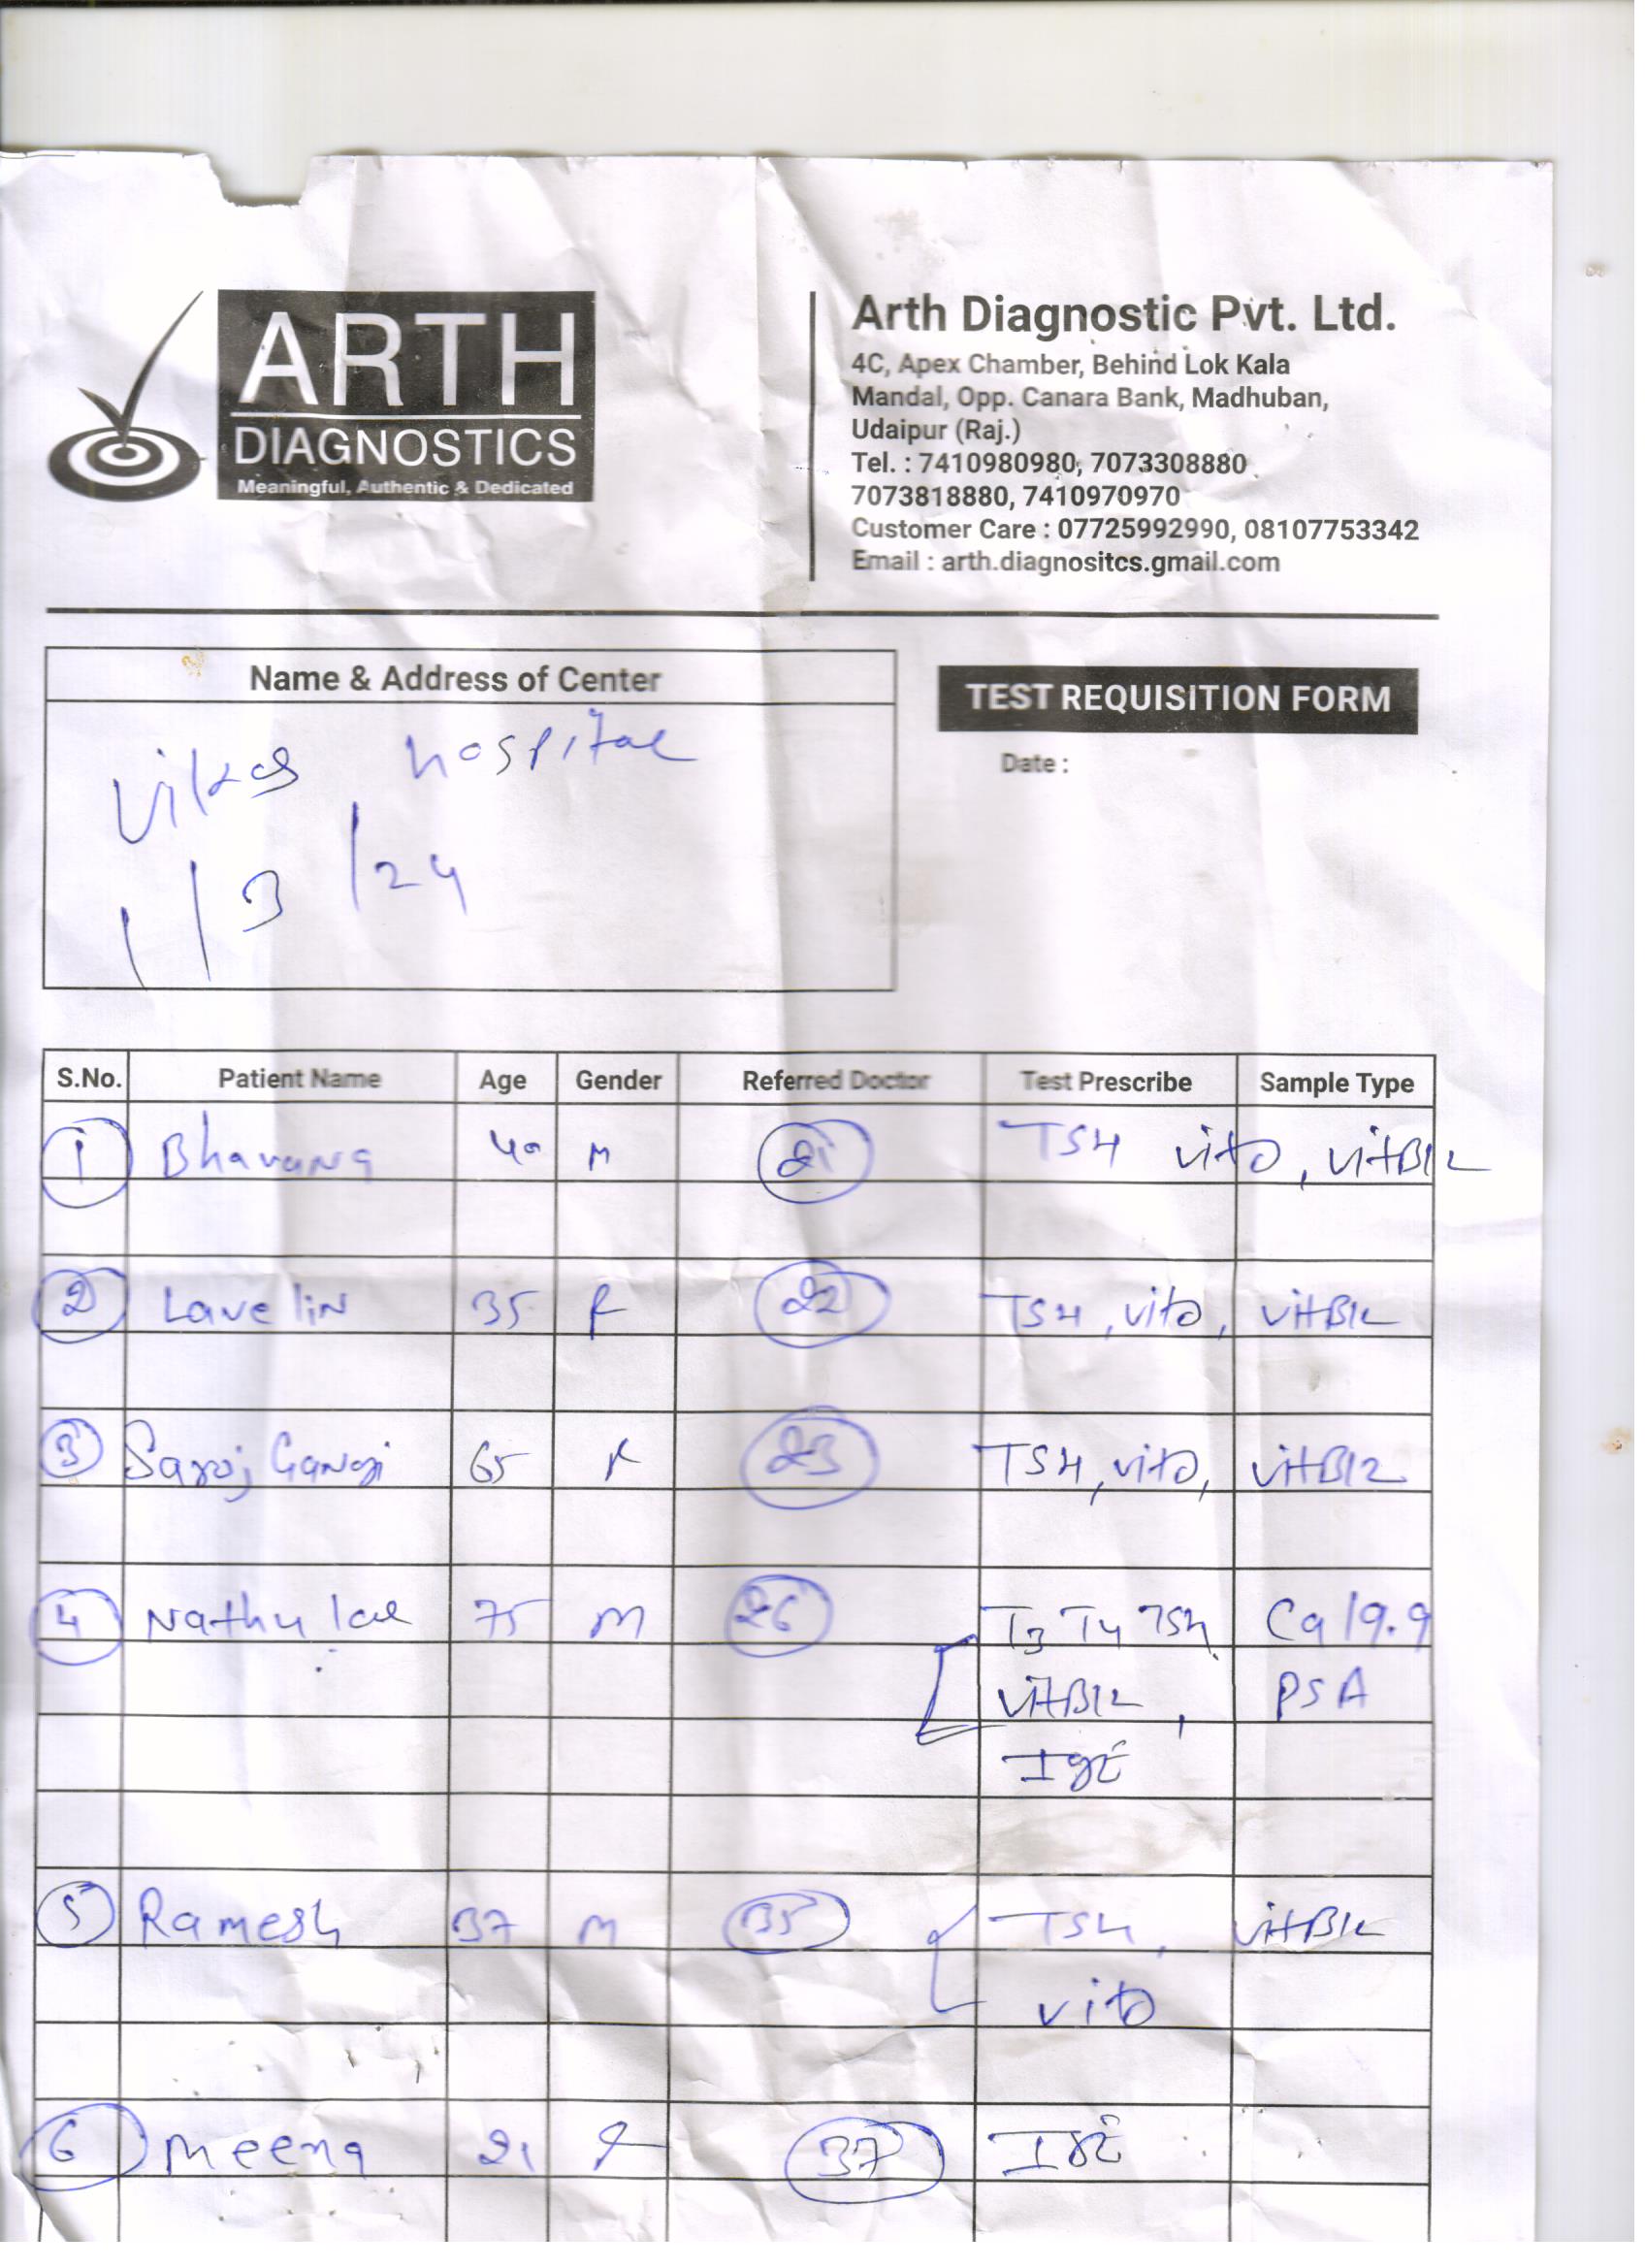 ARTH
DIAGNOSTICS
Meaningful, Authentic & Dedicated
Arth Diagnostic Pvt. Ltd.
4C, Apex Chamber, Behind Lok Kala
Mandal, Opp. Canara Bank, Madhuban,
Udaipur (Raj.)
Tel. : 7410980980, 7073308880
7073818880, 7410970970
Customer Care : 07725992990, 08107753342
Email : arth.diagnositcs.gmail.com
Name & Address of Center
TEST REQUISITION FORM
Date :
Vikas hospital
1/3/24
S.No. Patient Name Age Gender Referred Doctor Test Prescribe Sample Type
1 Bhavana 40 M 21 TSH vitD, vitB12
2 Lavelin 35 F 22 TSH, vitD, vitB12
3 Saroj 65 F 23 TSH, vitD, vitB12
4 Nathu lal 75 M 26 T3 T4 TSH, Ca 19.9
vitB12, PSA
IgE
5 Ramesh 37 M 35 TSH, vitB12
vitD
6 Meena 21 F 37 IgE